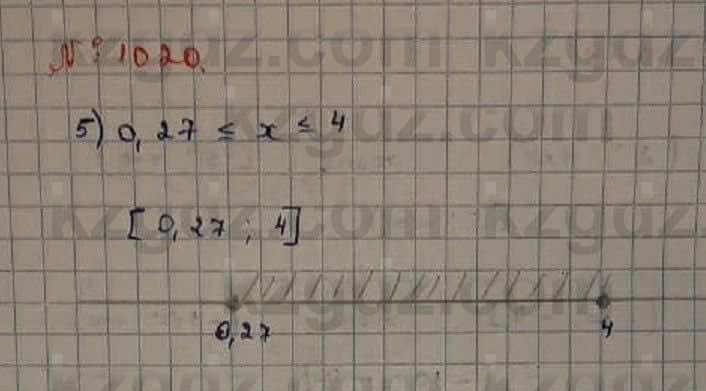 № 1020.
5) 0,27 ≤ x ≤ 4
[0,27; 4]
0,27 4
kzguz.com